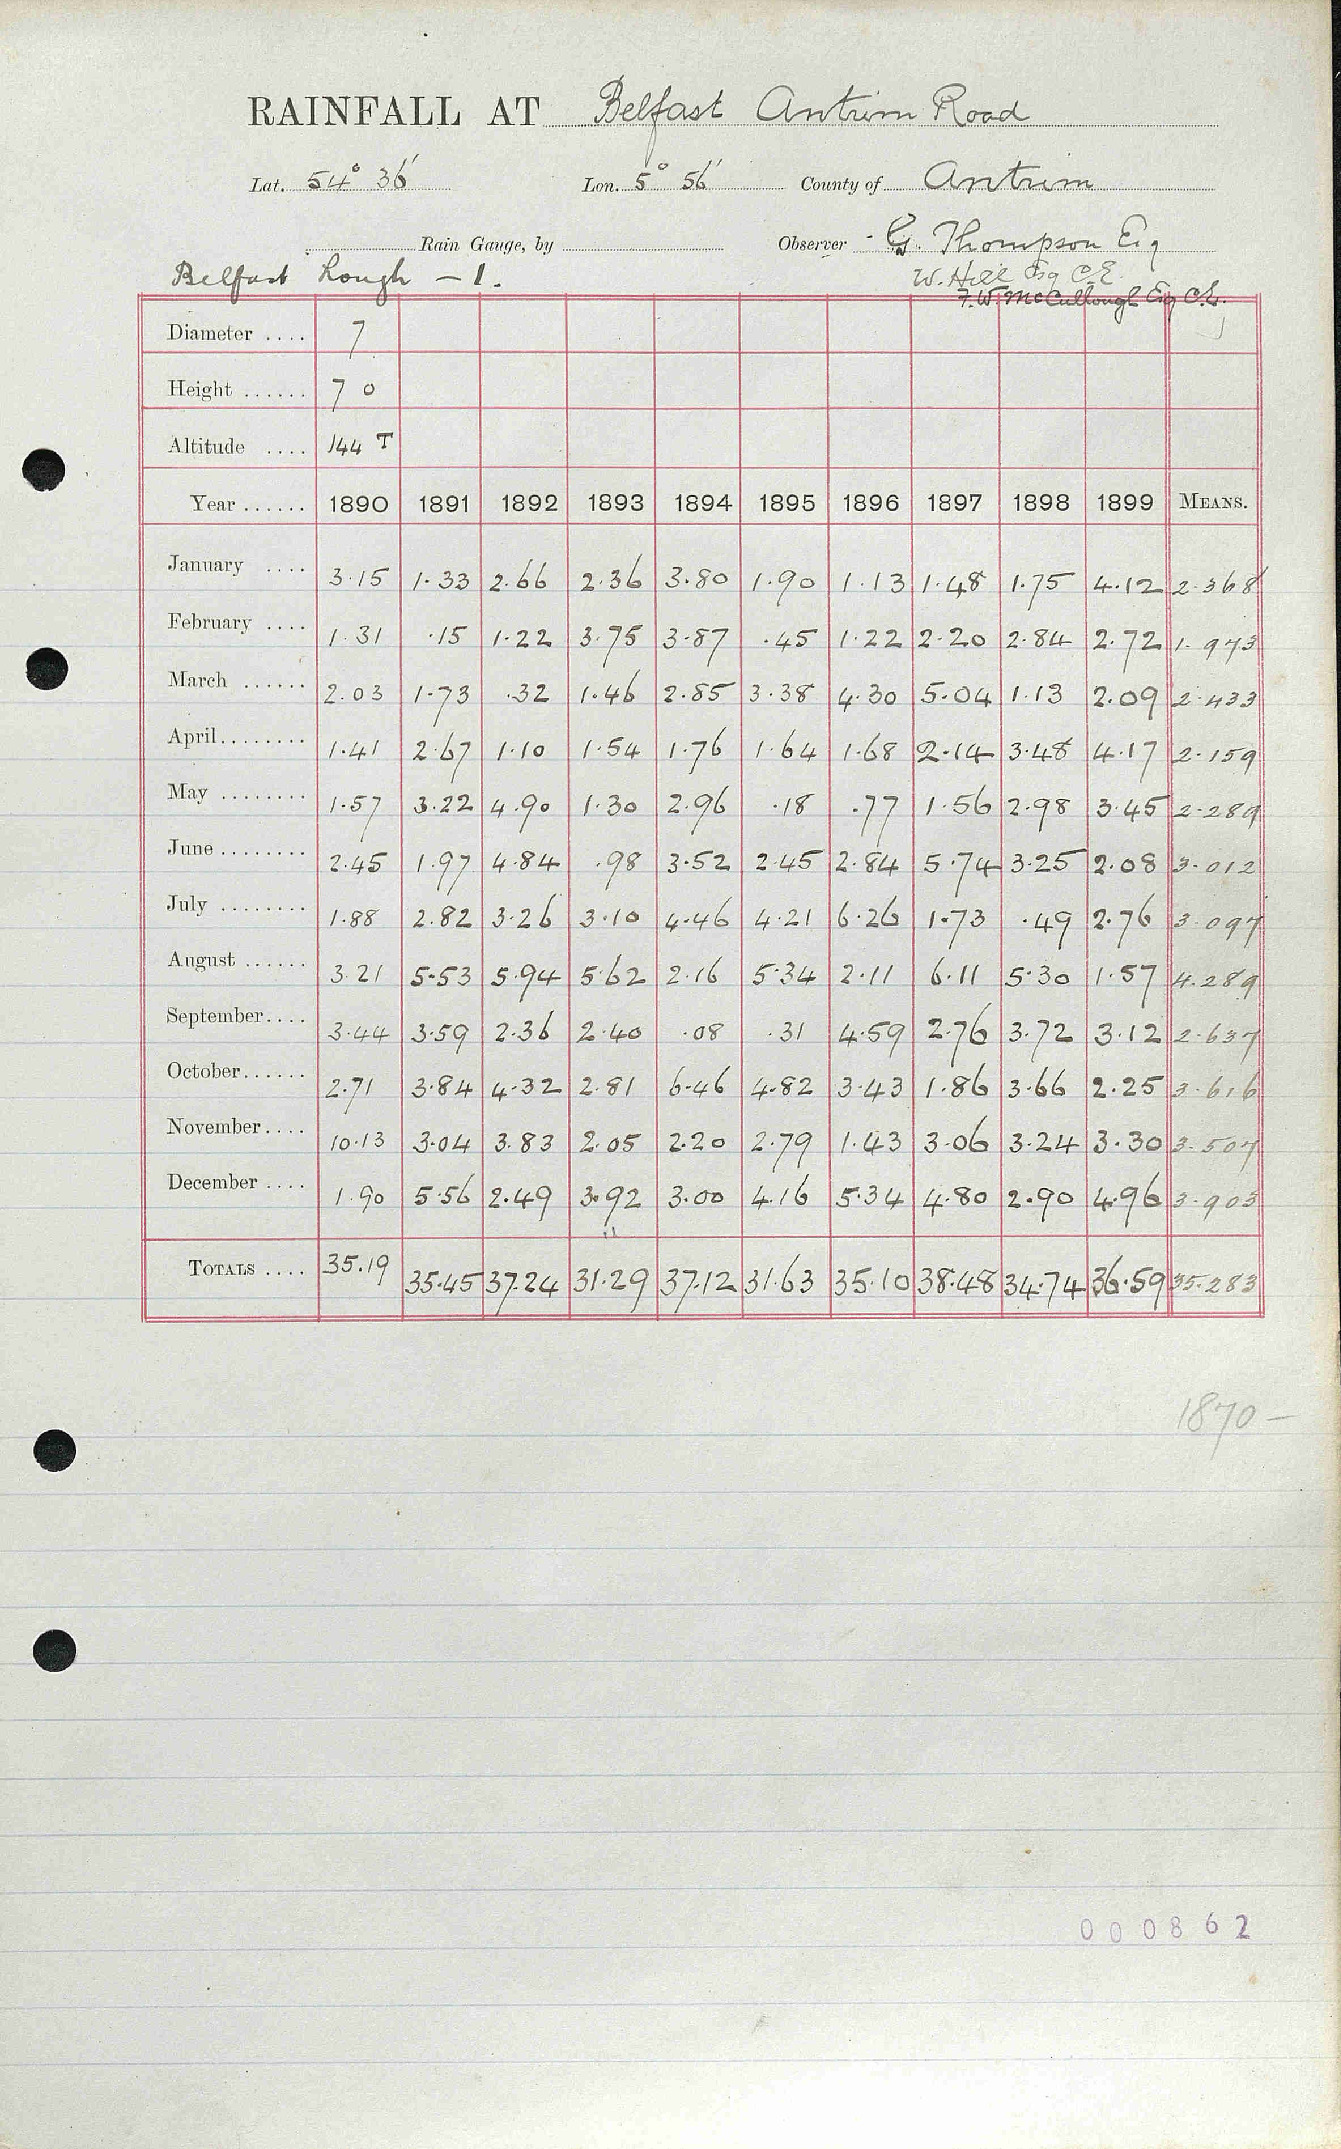 RAINFALL AT Belfast Antrim Road
Lat. 54° 36' Lon. 5° 56' County of Antrim
Rain Gauge, by Observer - G. Thompson Esq
Belfast Lough - 1. W. Hill Esq C.E.
F. W. McCullough Esq C.E.
Diameter .... 7
Height ...... 7 0
Altitude .... 144 T
Year ...... 1890 1891 1892 1893 1894 1895 1896 1897 1898 1899 MEANS.
January .... 3.15 1.33 2.66 2.36 3.80 1.90 1.13 1.48 1.75 4.12 2.368
February .... 1.31 .15 1.22 3.75 3.87 .45 1.22 2.20 2.84 2.72 1.973
March ...... 2.03 1.73 .32 1.46 2.85 3.38 4.30 5.04 1.13 2.09 2.433
April........ 1.41 2.67 1.10 1.54 1.76 1.64 1.68 2.14 3.48 4.17 2.159
May ........ 1.57 3.22 4.90 1.30 2.96 .18 .77 1.56 2.98 3.45 2.289
June ........ 2.45 1.97 4.84 .98 3.52 2.45 2.84 5.74 3.25 2.08 3.012
July ........ 1.88 2.82 3.26 3.10 4.46 4.21 6.26 1.73 .49 2.76 3.097
August ...... 3.21 5.53 5.94 5.62 2.16 5.34 2.11 6.11 5.30 1.57 4.289
September.... 3.44 3.59 2.36 2.40 .08 .31 4.59 2.76 3.72 3.12 2.637
October...... 2.71 3.84 4.32 2.81 6.46 4.82 3.43 1.86 3.66 2.25 3.616
November.... 10.13 3.04 3.83 2.05 2.20 2.79 1.43 3.06 3.24 3.30 3.507
December .... 1.90 5.56 2.49 3.92 3.00 4.16 5.34 4.80 2.90 4.96 3.903
TOTALS .... 35.19 35.45 37.24 31.29 37.12 31.63 35.10 38.48 34.74 36.59 35.283
1870 -
000862